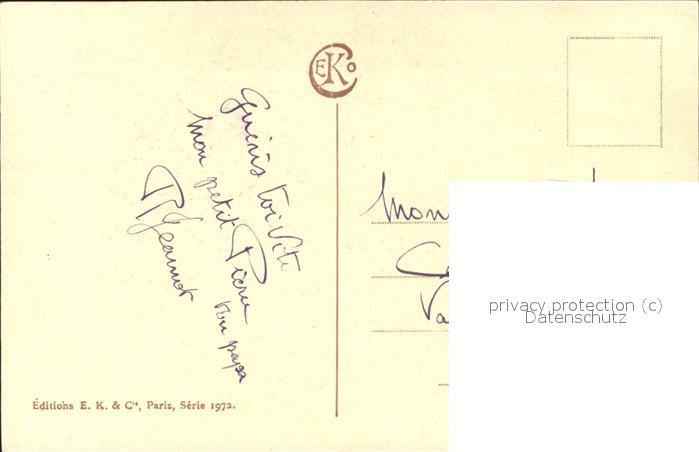 EKCo
Guéris toi vite
mon petit Pierre
ton papa
P. Jeannot
Mon
Va
privacy protection (c)
Datenschutz
Éditions E. K. & Cie, Paris, Série 1972.